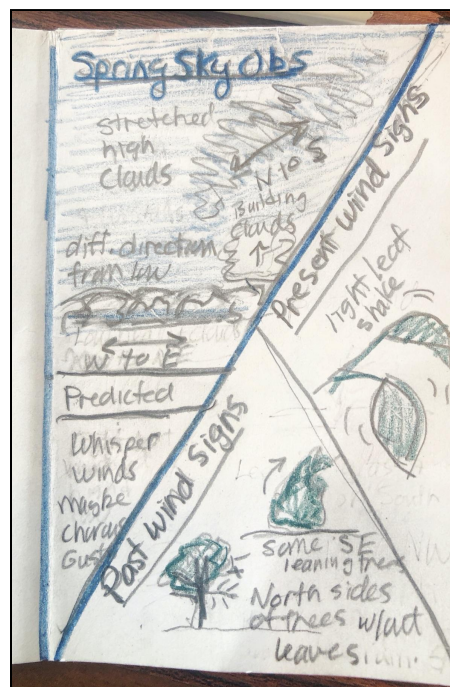 Spring Sky Obs
stretched
high
clouds
N to S
Building
clouds
diff. direction
from low
W to E
Predicted
Whisper
winds
maybe
Gust
Present wind signs
light leaf
shake
Past wind signs
some SE
leaning trees
North sides
of trees w/out
leaves